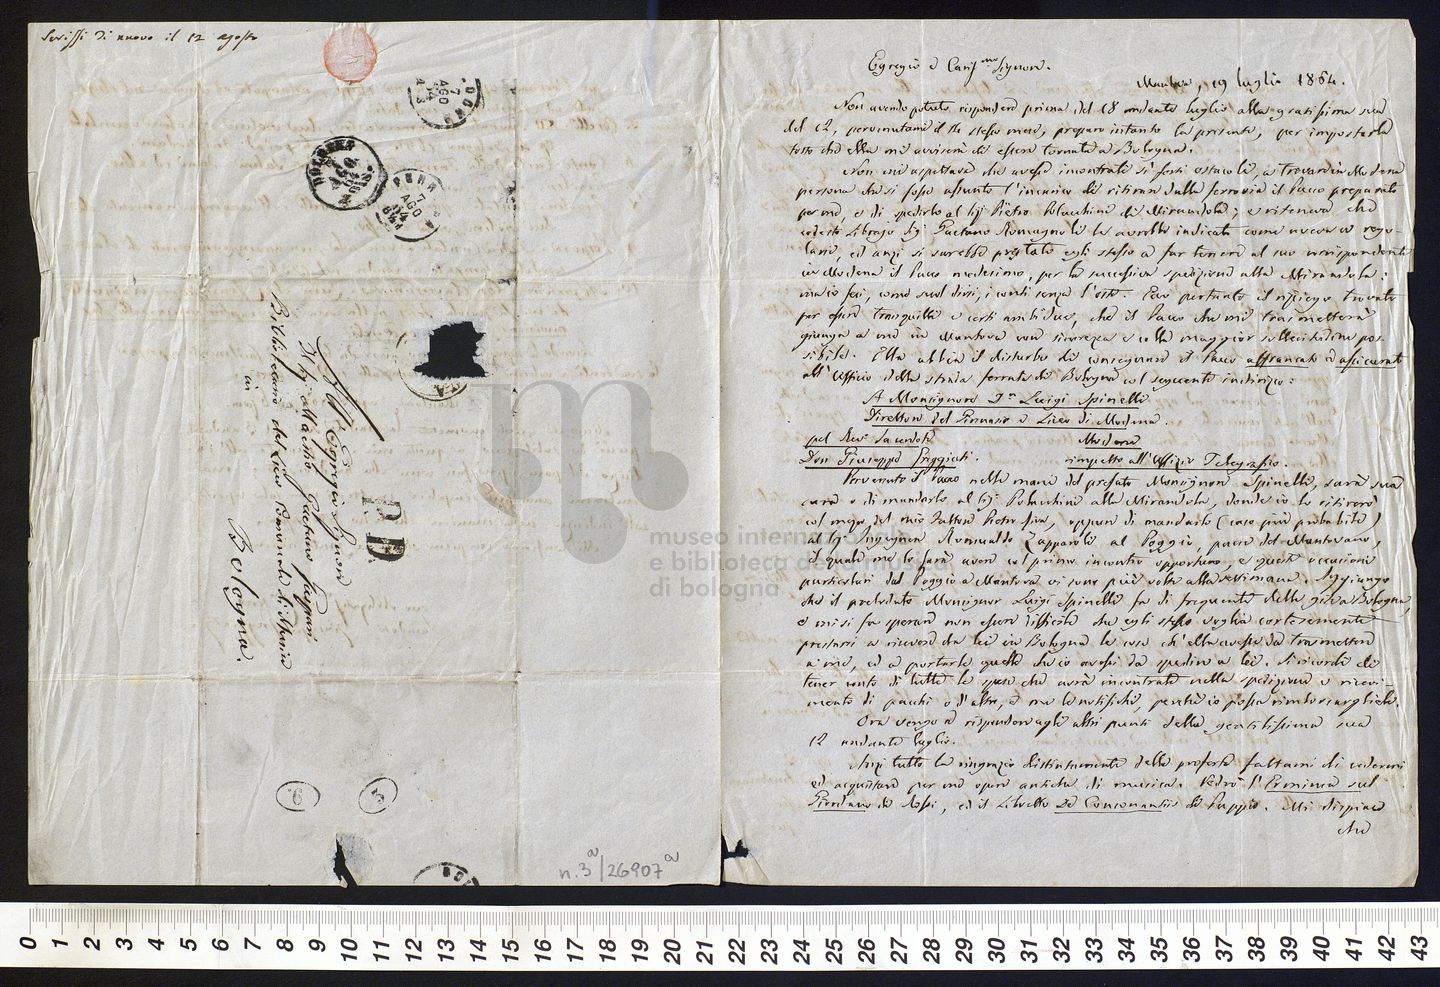 Scrissi di nuovo il 12 agosto
7
AGO
BOLOGNA
AGO
7
AGO
All' Egregio Signore
Il Sig. Maestro Gaetano Gaspari
Bibliotecario del Liceo Comunale di Musica
in
Bologna.
P.D.
6
5
n. 3ª/26907ª
Egregio e Cariss.mo Signore.
Mantova, 19 luglio 1864.
Non avendo potuto rispondere prima del 18 andante luglio alla gratissima sua
del 12, pervenutami il 14 stesso mese, preparo intanto la presente, per impostarla
tosto che ella mi avviserà di essere tornato a Bologna.
Non mi aspettava che avesse incontrati sì forti ostacoli, a trovar in Modena
persona che si fosse assunto l'incarico di ritirare dalla ferrovia il Pacco preparato
per me, e di spedirlo al Sig. Pietro Polacchini di Mirandola; e riteneva che
codesto Librajo Sig. Gaetano Romagnoli le avrebbe indicato come
ed anzi si sarebbe prestato egli stesso a far tenere al suo corrispondente
in Modena il Pacco medesimo, per la successiva spedizione alla Mirandola:
ma io feci, come suol dirsi, i conti senza l'oste. Ecco pertanto il ripiego trovato
per essere tranquilli e certi ambidue, che il Pacco che mi trasmetterà
giunga a me in Mantova con sicurezza e colla maggior sollecitudine pos-
sibile. Ella abbia il disturbo di consegnare il Pacco affrancato ed assicurato
all'Ufficio della strada ferrata di Bologna col seguente indirizzo:
A Monsignore D.n Luigi Spinelli
Direttore del Ginnasio e Liceo di Modena.
pel Rev. Sacerdote
Modena
Don Giuseppe Greggiati.
rimpetto all'Uffizio Telegrafico.
Pervenuto il Pacco nelle mani del prefato Monsignor Spinelli, sarà sua
cura o di mandarlo al Sig. Polacchini alla Mirandola, donde io lo ritirerò
col mezzo del mio Fattore, oppure di mandarlo (caso più probabile)
al Sig. Ingegnere Romualdo Zapparoli al Poggio, paese del Mantovano,
il quale me lo farà avere col primo incontro opportuno, e queste occasioni
particolari dal Poggio a Mantova vi sono più volte alla settimana. Aggiungo
che il prelodato Monsignor Luigi Spinelli fa di frequente delle gite a Bologna,
e mi si fa sperare non essere difficile che egli stesso voglia cortesemente
prestarsi a ricevere da lei in Bologna le cose ch'ella avesse da trasmettere
a me, ed a portarle quelle che io avessi da spedire a lei. Si ricordi di
tener conto di tutte le spese che avrà incontrate nella spedizione e ricevi-
mento di pacchi o d'altro, e me le notifichi, perché io possa rimborsargliele.
Ora vengo a rispondere agli altri punti della gentilissima sua
12 andante luglio.
Anzi tutto la ringrazio distintamente della proferta fattami di cedermi
ed acquistare per me opere antiche di musica. Vedrò l'Erminia sul
Giordano di Rossi, ed il Libretto di Puppio. Mi dispiace
che
museo internazionale
e biblioteca della musica
di bologna
0 1 2 3 4 5 6 7 8 9 10 11 12 13 14 15 16 17 18 19 20 21 22 23 24 25 26 27 28 29 30 31 32 33 34 35 36 37 38 39 40 41 42 43